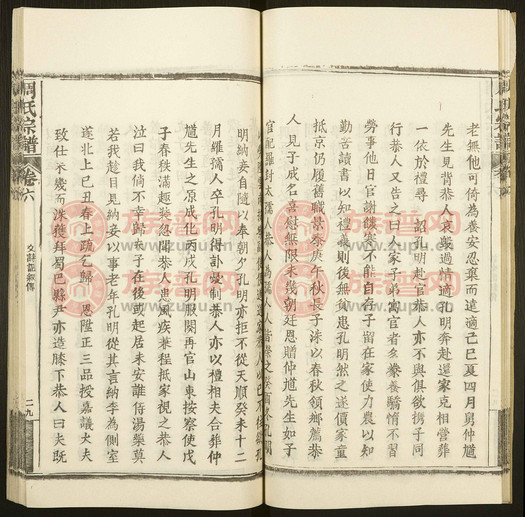 老無他可倚為養安忍棄而遠適己巳夏四月舅仲馗
先生見背恭人哀毀過情適孔明奔赴還家克相營葬
一依於禮尋
詔孔明赴官恭人亦不與俱欲携子同
行恭人又告之曰大家子弟寓官者多豢養驕惰不習
勞事他日官謝饑
不能自存子留在家使力農以知
勤苦讀書以知禮義則後無貧患孔明然之遂價家童
抵京仍履舊職景泰庚午秋長子洙以春秋領鄉薦恭
人見子成名喜慰無限未幾朝廷恩贈仲馗先生如子
官配羅封太孺人恭人為孺人
明納妾自隨以奉朝夕孔明亦拒不從天順癸未十二
月羅孺人卒孔明得訃憂制恭人亦以禮相夫合葬仲
馗先生之原成化丙戌孔明服闋再官山東按察使戊
子春秩滿趨裝忽聞恭人患風疾兼程抵家視之恭人
泣曰我倘不幸歸夫子在後或起居未安誰侍湯藥莫
若我趁目見納妾以事老年孔明從其言納李為側室
遂北上己丑春上疏乞歸
恩陞正三品授嘉議大夫
致仕未幾而洙穗拜蜀巴縣尹亦造膝下恭人曰夫既
周氏宗譜
卷六
二九
族譜网
www.zupu.cn